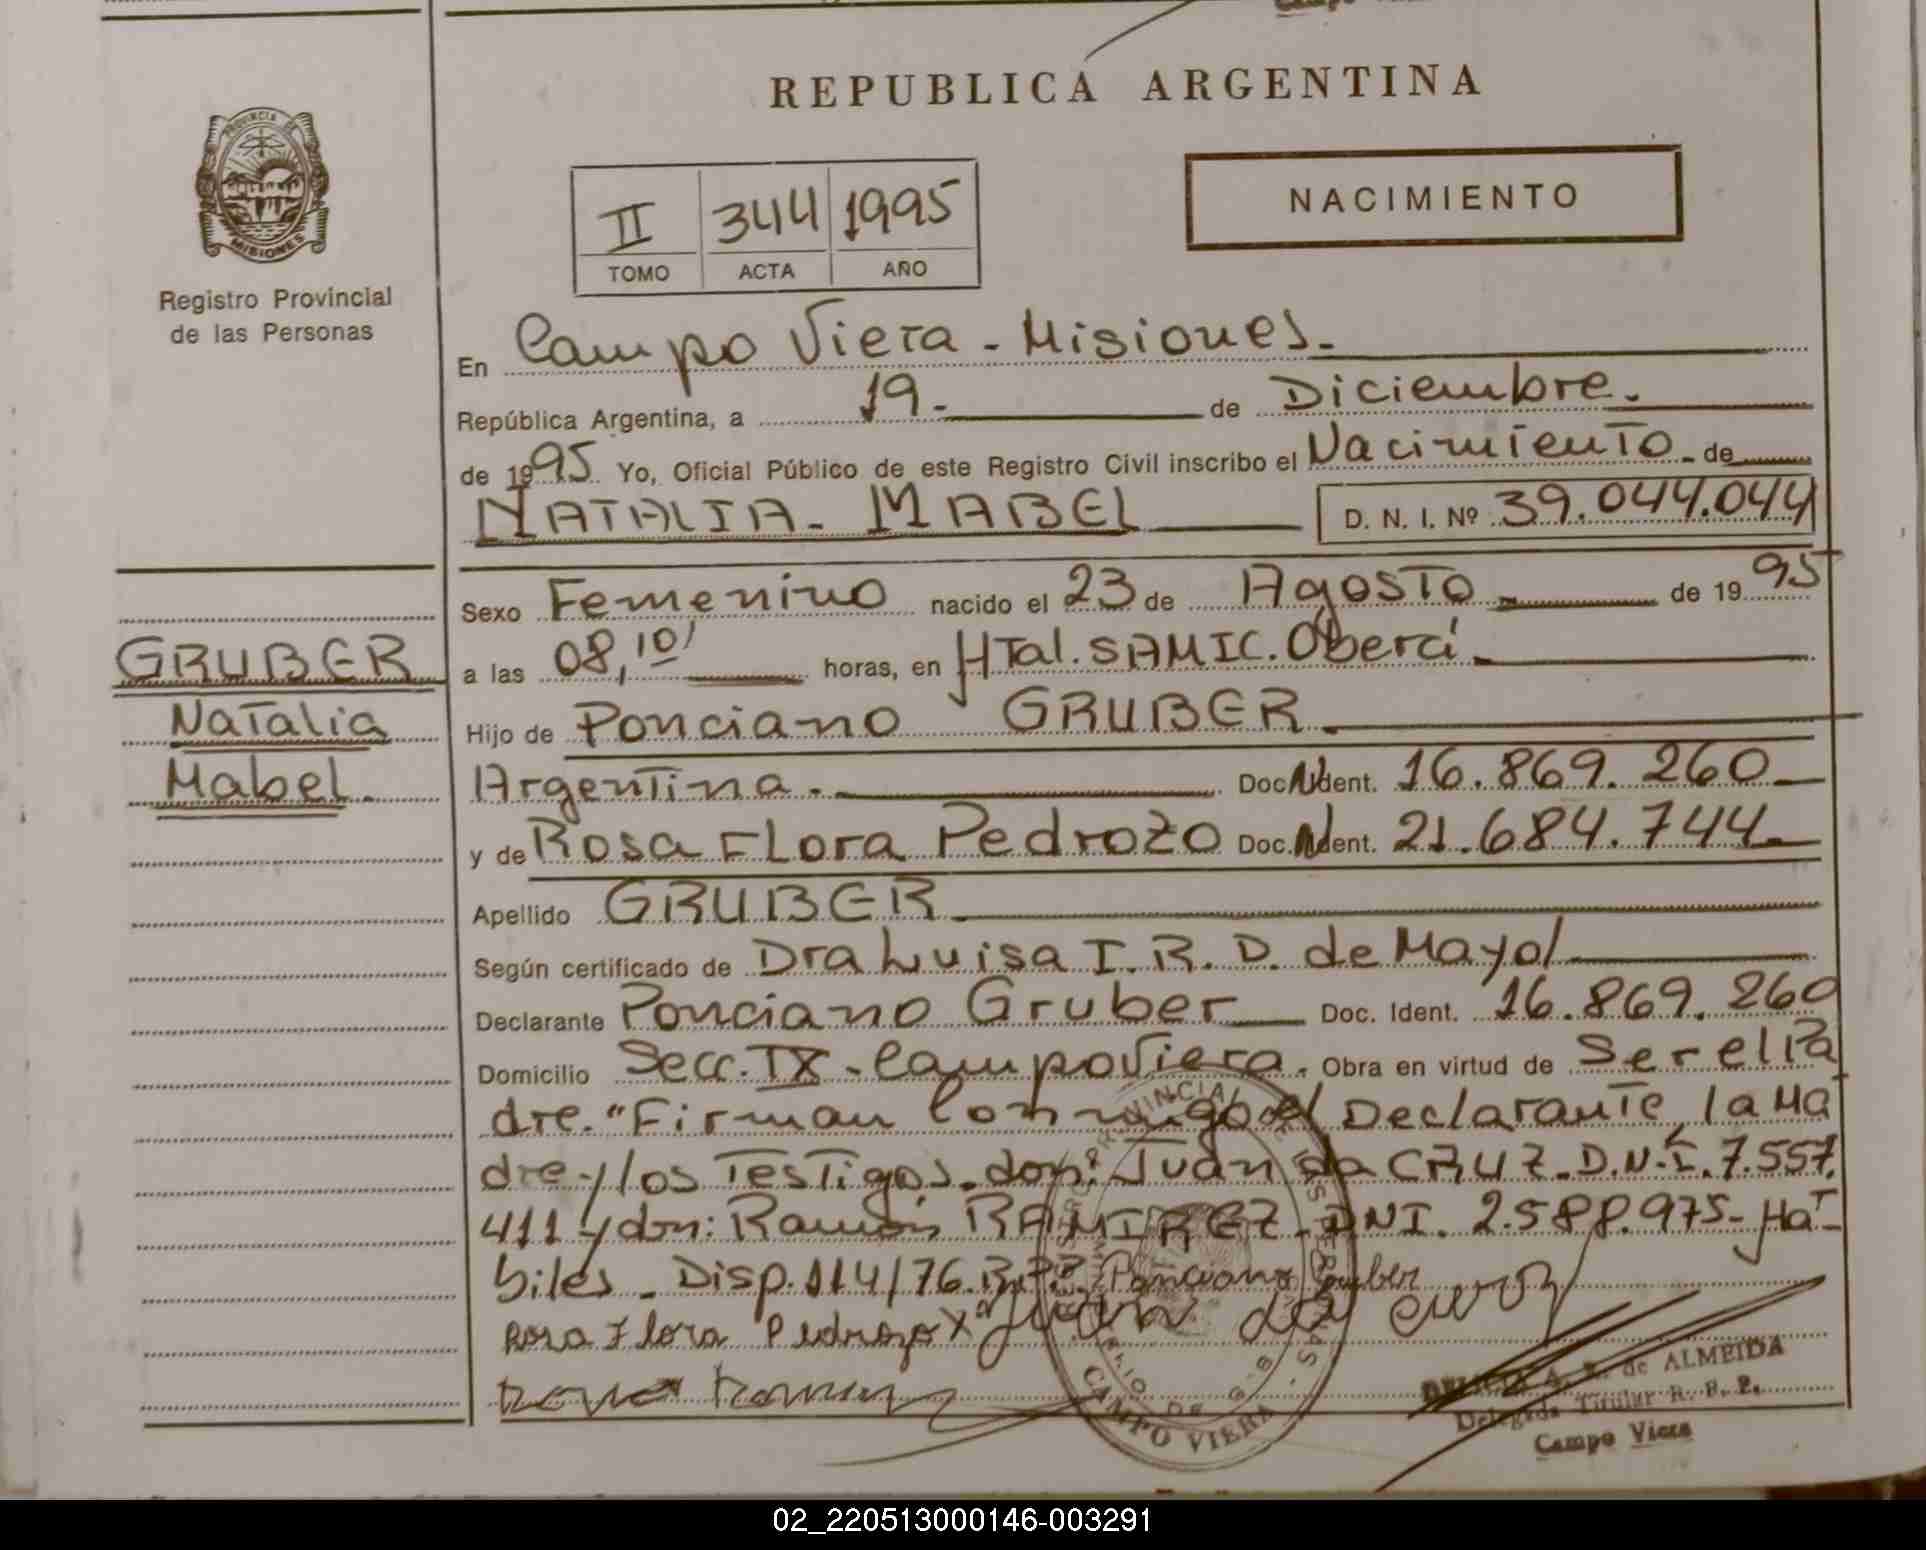 REPUBLICA ARGENTINA
PROVINCIA DE
MISIONES
Registro Provincial
de las Personas
II 344 1995
TOMO ACTA AÑO
NACIMIENTO
En Campo Viera - Misiones.
República Argentina, a 19. de Diciembre.
de 1995 Yo, Oficial Público de este Registro Civil inscribo el Nacimiento de
NATALIA - MABEL D. N. I. Nº 39.044.044
Sexo Femenino nacido el 23 de Agosto de 1995
a las 08,10' horas, en HTal. SAMIC. Oberá
Hijo de Ponciano GRUBER
Argentina. Doc. N. Ident. 16.869.260
y de Rosa FLora Pedrozo Doc. N. Ident. 21.684.744
Apellido GRUBER
Según certificado de Dra Luisa I. R. D. de Mayol
Declarante Ponciano Gruber Doc. Ident. 16.869.260
Domicilio Secc. IX - Campo Viera. Obra en virtud de Ser el Pa
dre. "Firman Conmigo el Declarante, la Ma
dre y los Testigos. don: Juan da CRUZ - D.N.I. 7.557.
411 y don: Ramón RAMIREZ - DNI. 2.588.975 - Há-
biles - Disp. 114/76.
Ponciano Gruber
Rosa Flora Pedrozo x Juan da cruz
GRUBER
Natalia
Mabel
CAMPO VIERA
de ALMEIDA
Delegada Titular R. P. P.
Campo Viera
02_220513000146-003291